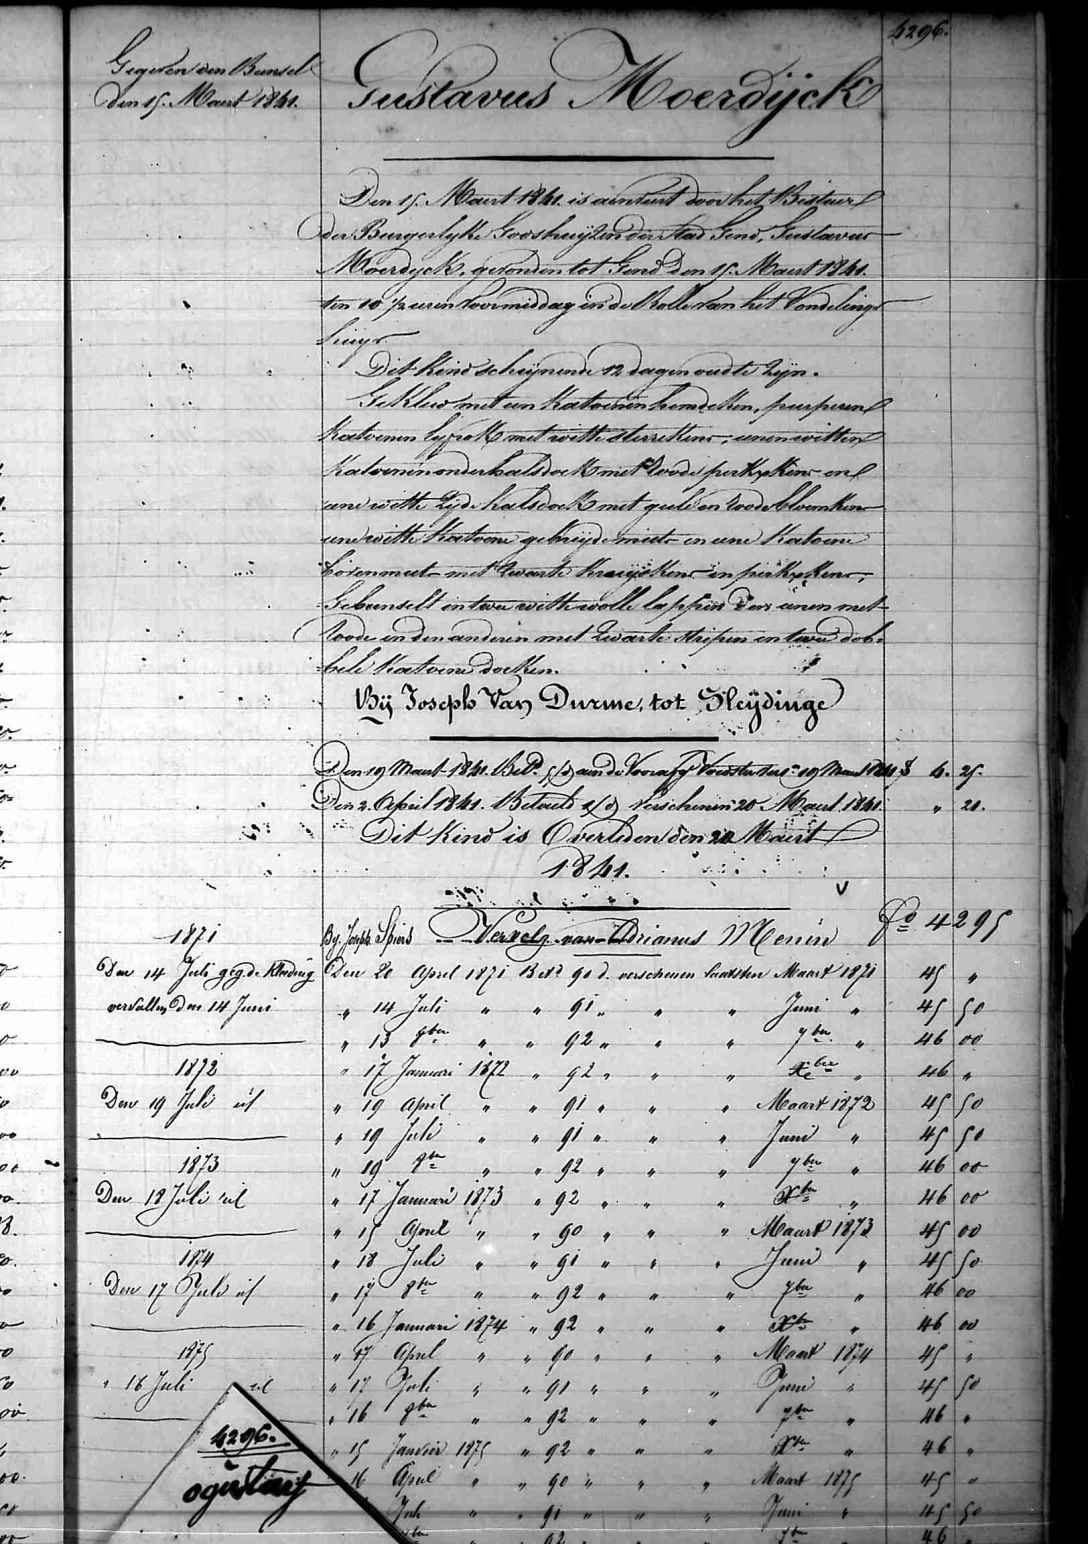 4296.
Gegeven een Bunsel
den 15. Maert 1841.
Gustavus Moerdijck
Den 15. Maert 1841. is aenveert door het Bestuer
der Burgerlyke Godshuijzen der Stad Gend, Gustavus
Moerdyck, gevonden tot Gend den 15. Maert 1841.
ten 10 1/2 uren voormiddag in de Rolle van het Vondelings
huys
Dit Kind schijnende 12 dagen oud te zyn.
Gekleed met een Katoenen hemdeken, purperen
Katoenen lyfrok met witte sterrekens, eenen witten
Katoenen onderhalsdoek met roode perkxkens en
eene witte zyde halsdoek met geele en roode bloemkens
eene witte Katoene gebreyde muts en eene Katoene
bovenmuts met zwarte kruijskens en perkxkens,
Gebunselt in twee witte wolle lappen den eenen met
roode en den anderen met zwarte stripen en twee dob-
bele Katoene doeken.
Bij Joseph Van Durme, tot Sleijdinge
Den 19 Maert 1841. Bet. aen de Voorafg. 19 Maert 1841 4. 25.
Den 2. April 1841. Betaeld verschenen 20 Maert 1841. " 20.
Dit Kind is Overleden den 20 Maert
1841.
Vervolg van Adrianus Menin Fo 4295
By Joseph Spiers
1871
Den 14 Juli geg. de Kleeding
vervallen den 14 Juni
Den 20 April 1871 Bet. 90 d. verschenen laatsten Maart 1871 45 "
" 14 Juli " " 91 " " " Juni " 45 50
" 13 8ber " " 92 " " " 7ber " 46 00
1872
" 17 Januari 1872 " 92 " " " Xber " 46 "
Den 19 Juli id
" 19 April " " 91 " " " Maart 1872 45 50
" 19 Juli " " 91 " " " Juni " 45 50
1873
" 19 8br " " 92 " " " 7ber " 46 00
Den 18 Juli id
" 17 Januari 1873 " 92 " " " Xber " 46 00
" 15 April " " 90 " " " Maart 1873 45 00
1874
" 18 Juli " " 91 " " " Juni " 45 50
Den 17 Juli id
" 17 8br " " 92 " " " 7ber " 46 00
" 16 Januari 1874 " 92 " " " Xber " 46 00
1875
" 17 April " " 90 " " " Maart 1874 45 "
" 16 Juli id
" 17 Juli " " 91 " " " Juni " 45 50
" 16 8ber " " 92 " " " 7ber " 46 "
" 15 Janvier 1875 " 92 " " " Xber " 46 "
16 April " " 90 " " " Maart 1875 45 "
Juli " " 91 " " " Juni " 45 50
92 " " " 7br " 46 "
4296.